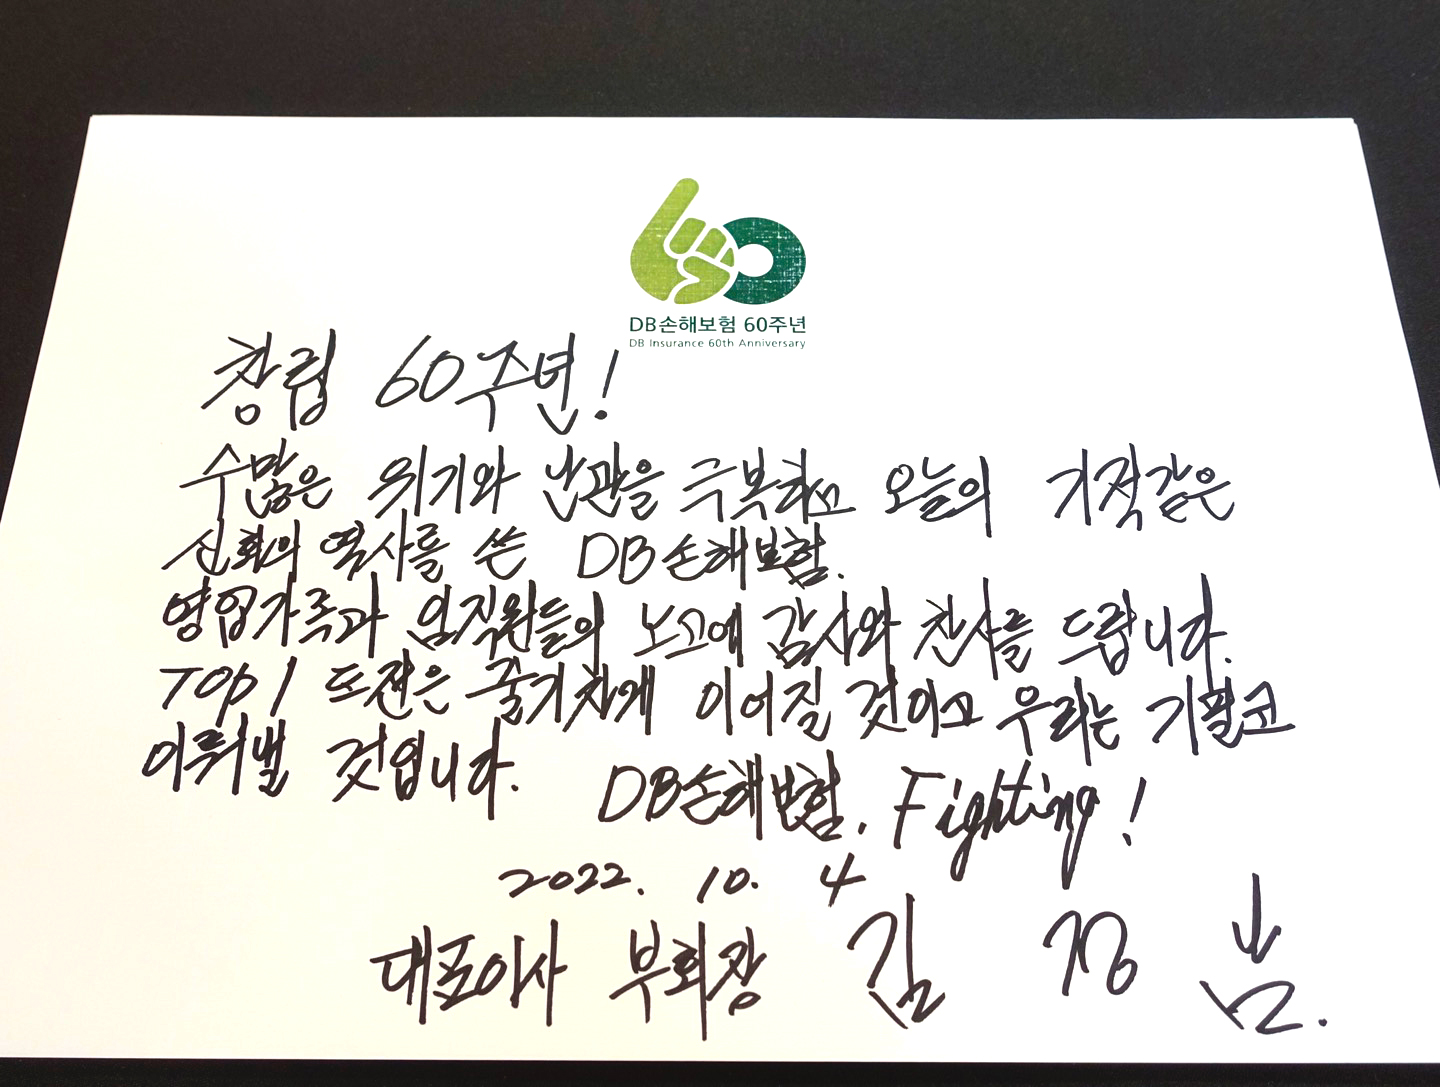 DB손해보험 60주년
DB Insurance 60th Anniversary
창립 60주년!
수많은 위기와 난관을 극복하고 오늘의 기적같은
신화의 역사를 쓴 DB손해보험.
영업가족과 임직원들의 노고에 감사와 찬사를 드립니다.
Top 1 도전은 줄기차게 이어질 것이고 우리는 기필코
이뤄낼 것입니다. DB손해보험. Fighting!
2022. 10. 4
대표이사 부회장 김 정 남.